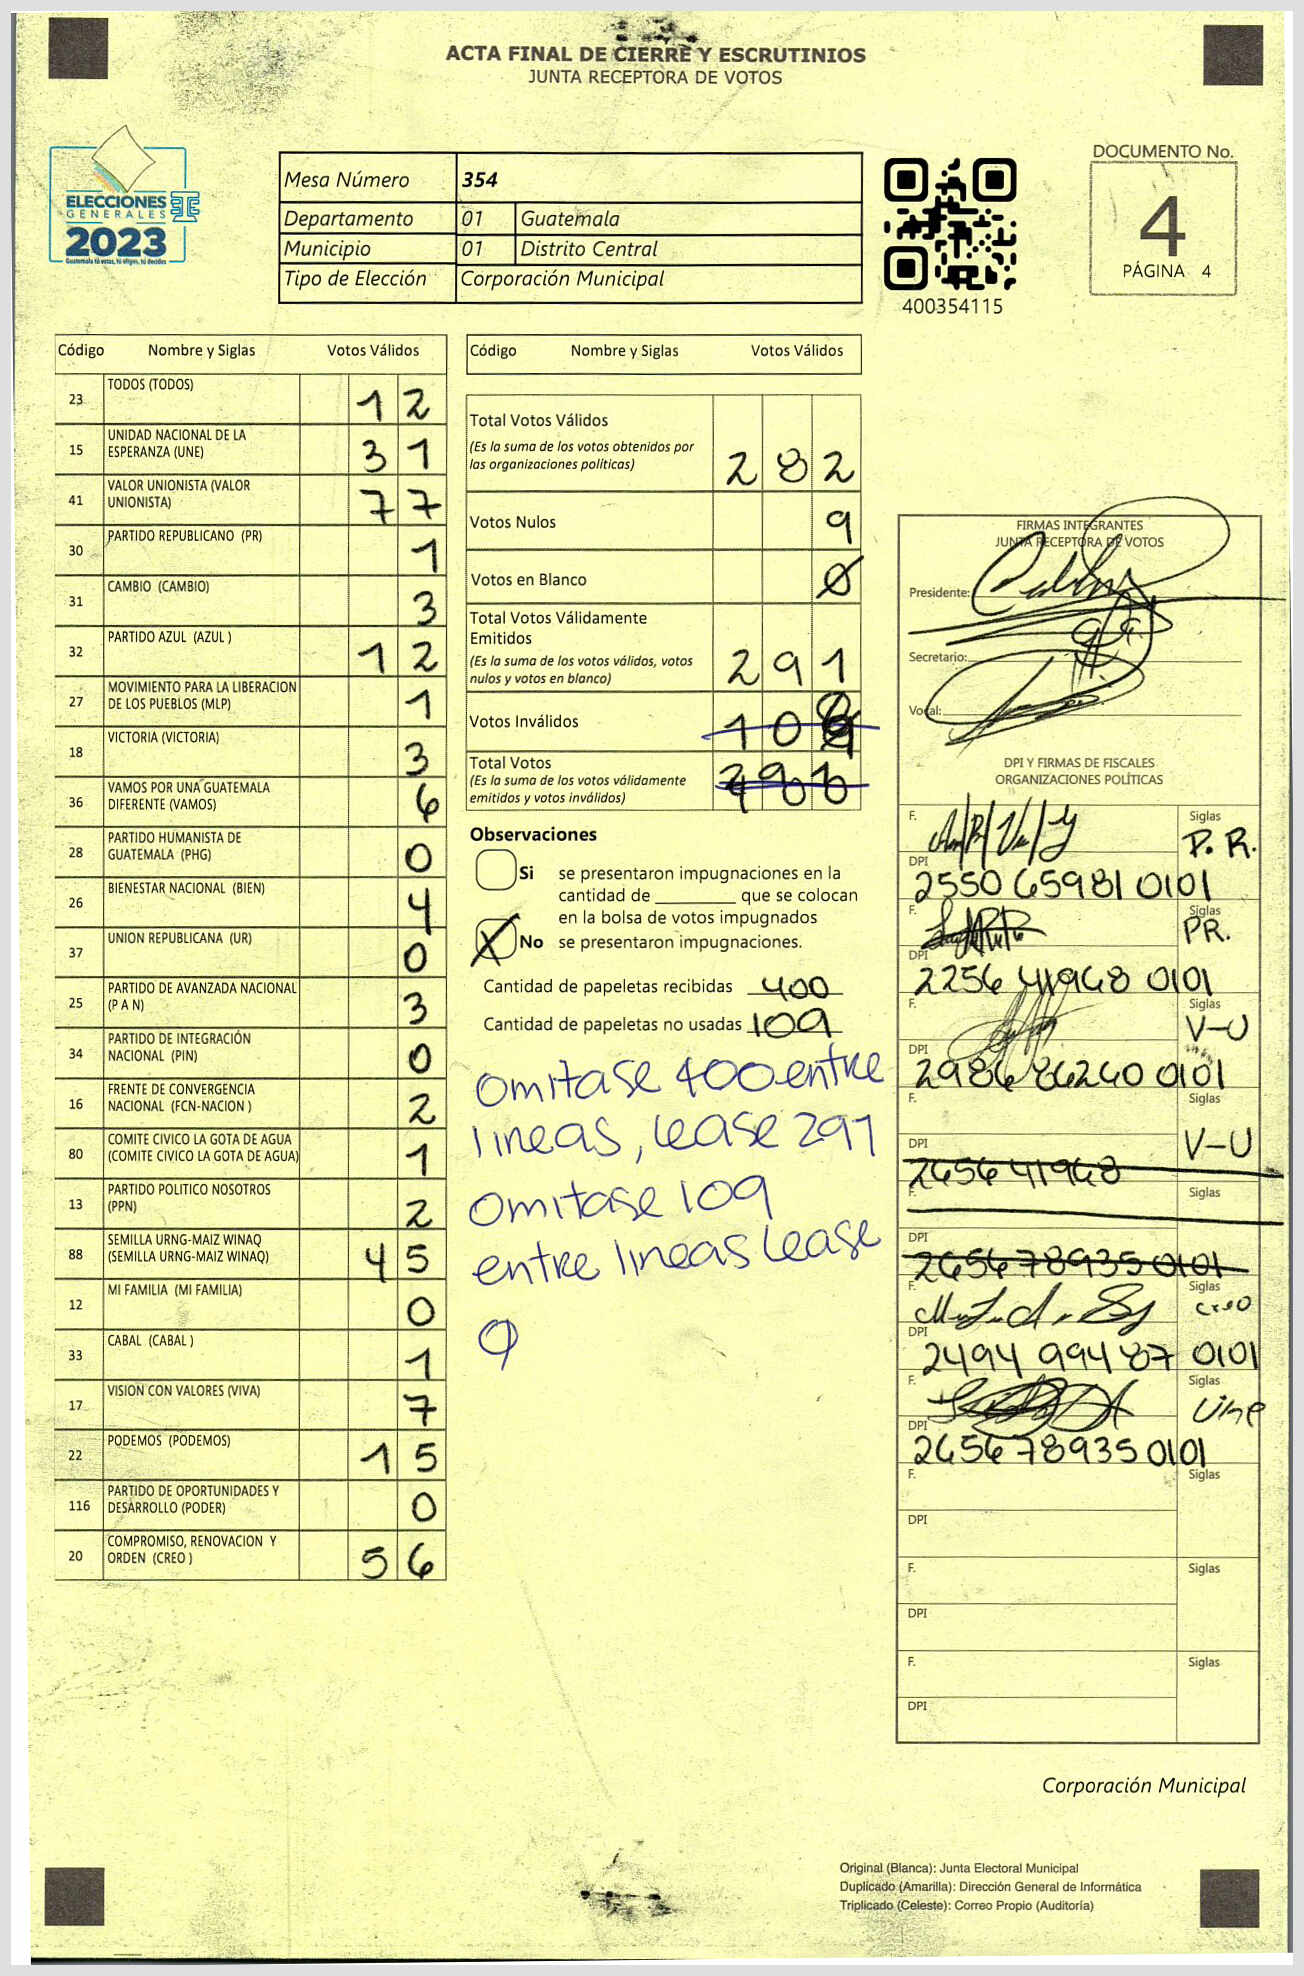 ACTA FINAL DE CIERRE Y ESCRUTINIOS
JUNTA RECEPTORA DE VOTOS
ELECCIONES
GENERALES
2023
Guatemala tú votas, tú eliges, tú decides
Mesa Número 354
Departamento 01 Guatemala
Municipio 01 Distrito Central
Tipo de Elección Corporación Municipal
400354115
DOCUMENTO No.
4
PÁGINA 4
Código Nombre y Siglas Votos Válidos
23 TODOS (TODOS) 12
15 UNIDAD NACIONAL DE LA
ESPERANZA (UNE) 31
41 VALOR UNIONISTA (VALOR
UNIONISTA) 77
30 PARTIDO REPUBLICANO (PR) 1
31 CAMBIO (CAMBIO) 3
32 PARTIDO AZUL (AZUL ) 12
27 MOVIMIENTO PARA LA LIBERACION
DE LOS PUEBLOS (MLP) 1
18 VICTORIA (VICTORIA) 3
36 VAMOS POR UNA GUATEMALA
DIFERENTE (VAMOS) 6
28 PARTIDO HUMANISTA DE
GUATEMALA (PHG) 0
26 BIENESTAR NACIONAL (BIEN) 4
37 UNION REPUBLICANA (UR) 0
25 PARTIDO DE AVANZADA NACIONAL
(P A N) 3
34 PARTIDO DE INTEGRACIÓN
NACIONAL (PIN) 0
16 FRENTE DE CONVERGENCIA
NACIONAL (FCN-NACION ) 2
80 COMITE CIVICO LA GOTA DE AGUA
(COMITE CIVICO LA GOTA DE AGUA) 1
13 PARTIDO POLITICO NOSOTROS
(PPN) 2
88 SEMILLA URNG-MAIZ WINAQ
(SEMILLA URNG-MAIZ WINAQ) 45
12 MI FAMILIA (MI FAMILIA) 0
33 CABAL (CABAL ) 1
17 VISION CON VALORES (VIVA) 7
22 PODEMOS (PODEMOS) 15
116 PARTIDO DE OPORTUNIDADES Y
DESARROLLO (PODER) 0
20 COMPROMISO, RENOVACION Y
ORDEN (CREO ) 56
Código Nombre y Siglas Votos Válidos
Total Votos Válidos
(Es la suma de los votos obtenidos por
las organizaciones políticas) 282
Votos Nulos 9
Votos en Blanco 0
Total Votos Válidamente
Emitidos
(Es la suma de los votos válidos, votos
nulos y votos en blanco) 291
Votos Inválidos
Total Votos
(Es la suma de los votos válidamente
emitidos y votos inválidos)
Observaciones
Si se presentaron impugnaciones en la
cantidad de ________ que se colocan
en la bolsa de votos impugnados
X No se presentaron impugnaciones.
Cantidad de papeletas recibidas 400
Cantidad de papeletas no usadas 109
Omitase 400 entre
lineas, lease 291
Omitase 109
entre lineas lease
0
FIRMAS INTEGRANTES
JUNTA RECEPTORA DE VOTOS
Presidente:
Secretario:
Vocal:
DPI Y FIRMAS DE FISCALES
ORGANIZACIONES POLÍTICAS
F. Siglas P. R.
DPI 2550 65981 0101
F. Siglas PR.
DPI 2256 41968 0101
F. Siglas V-U
DPI 2986 86240 0101
F. Siglas V-U
DPI 2656 41968
F. Siglas
DPI 2656 78935 0101
F. Siglas creo
DPI 2494 99487 0101
F. Siglas Une
DPI 2656 78935 0101
F. Siglas
DPI
F. Siglas
DPI
F. Siglas
DPI
Corporación Municipal
Original (Blanca): Junta Electoral Municipal
Duplicado (Amarilla): Dirección General de Informática
Triplicado (Celeste): Correo Propio (Auditoría)